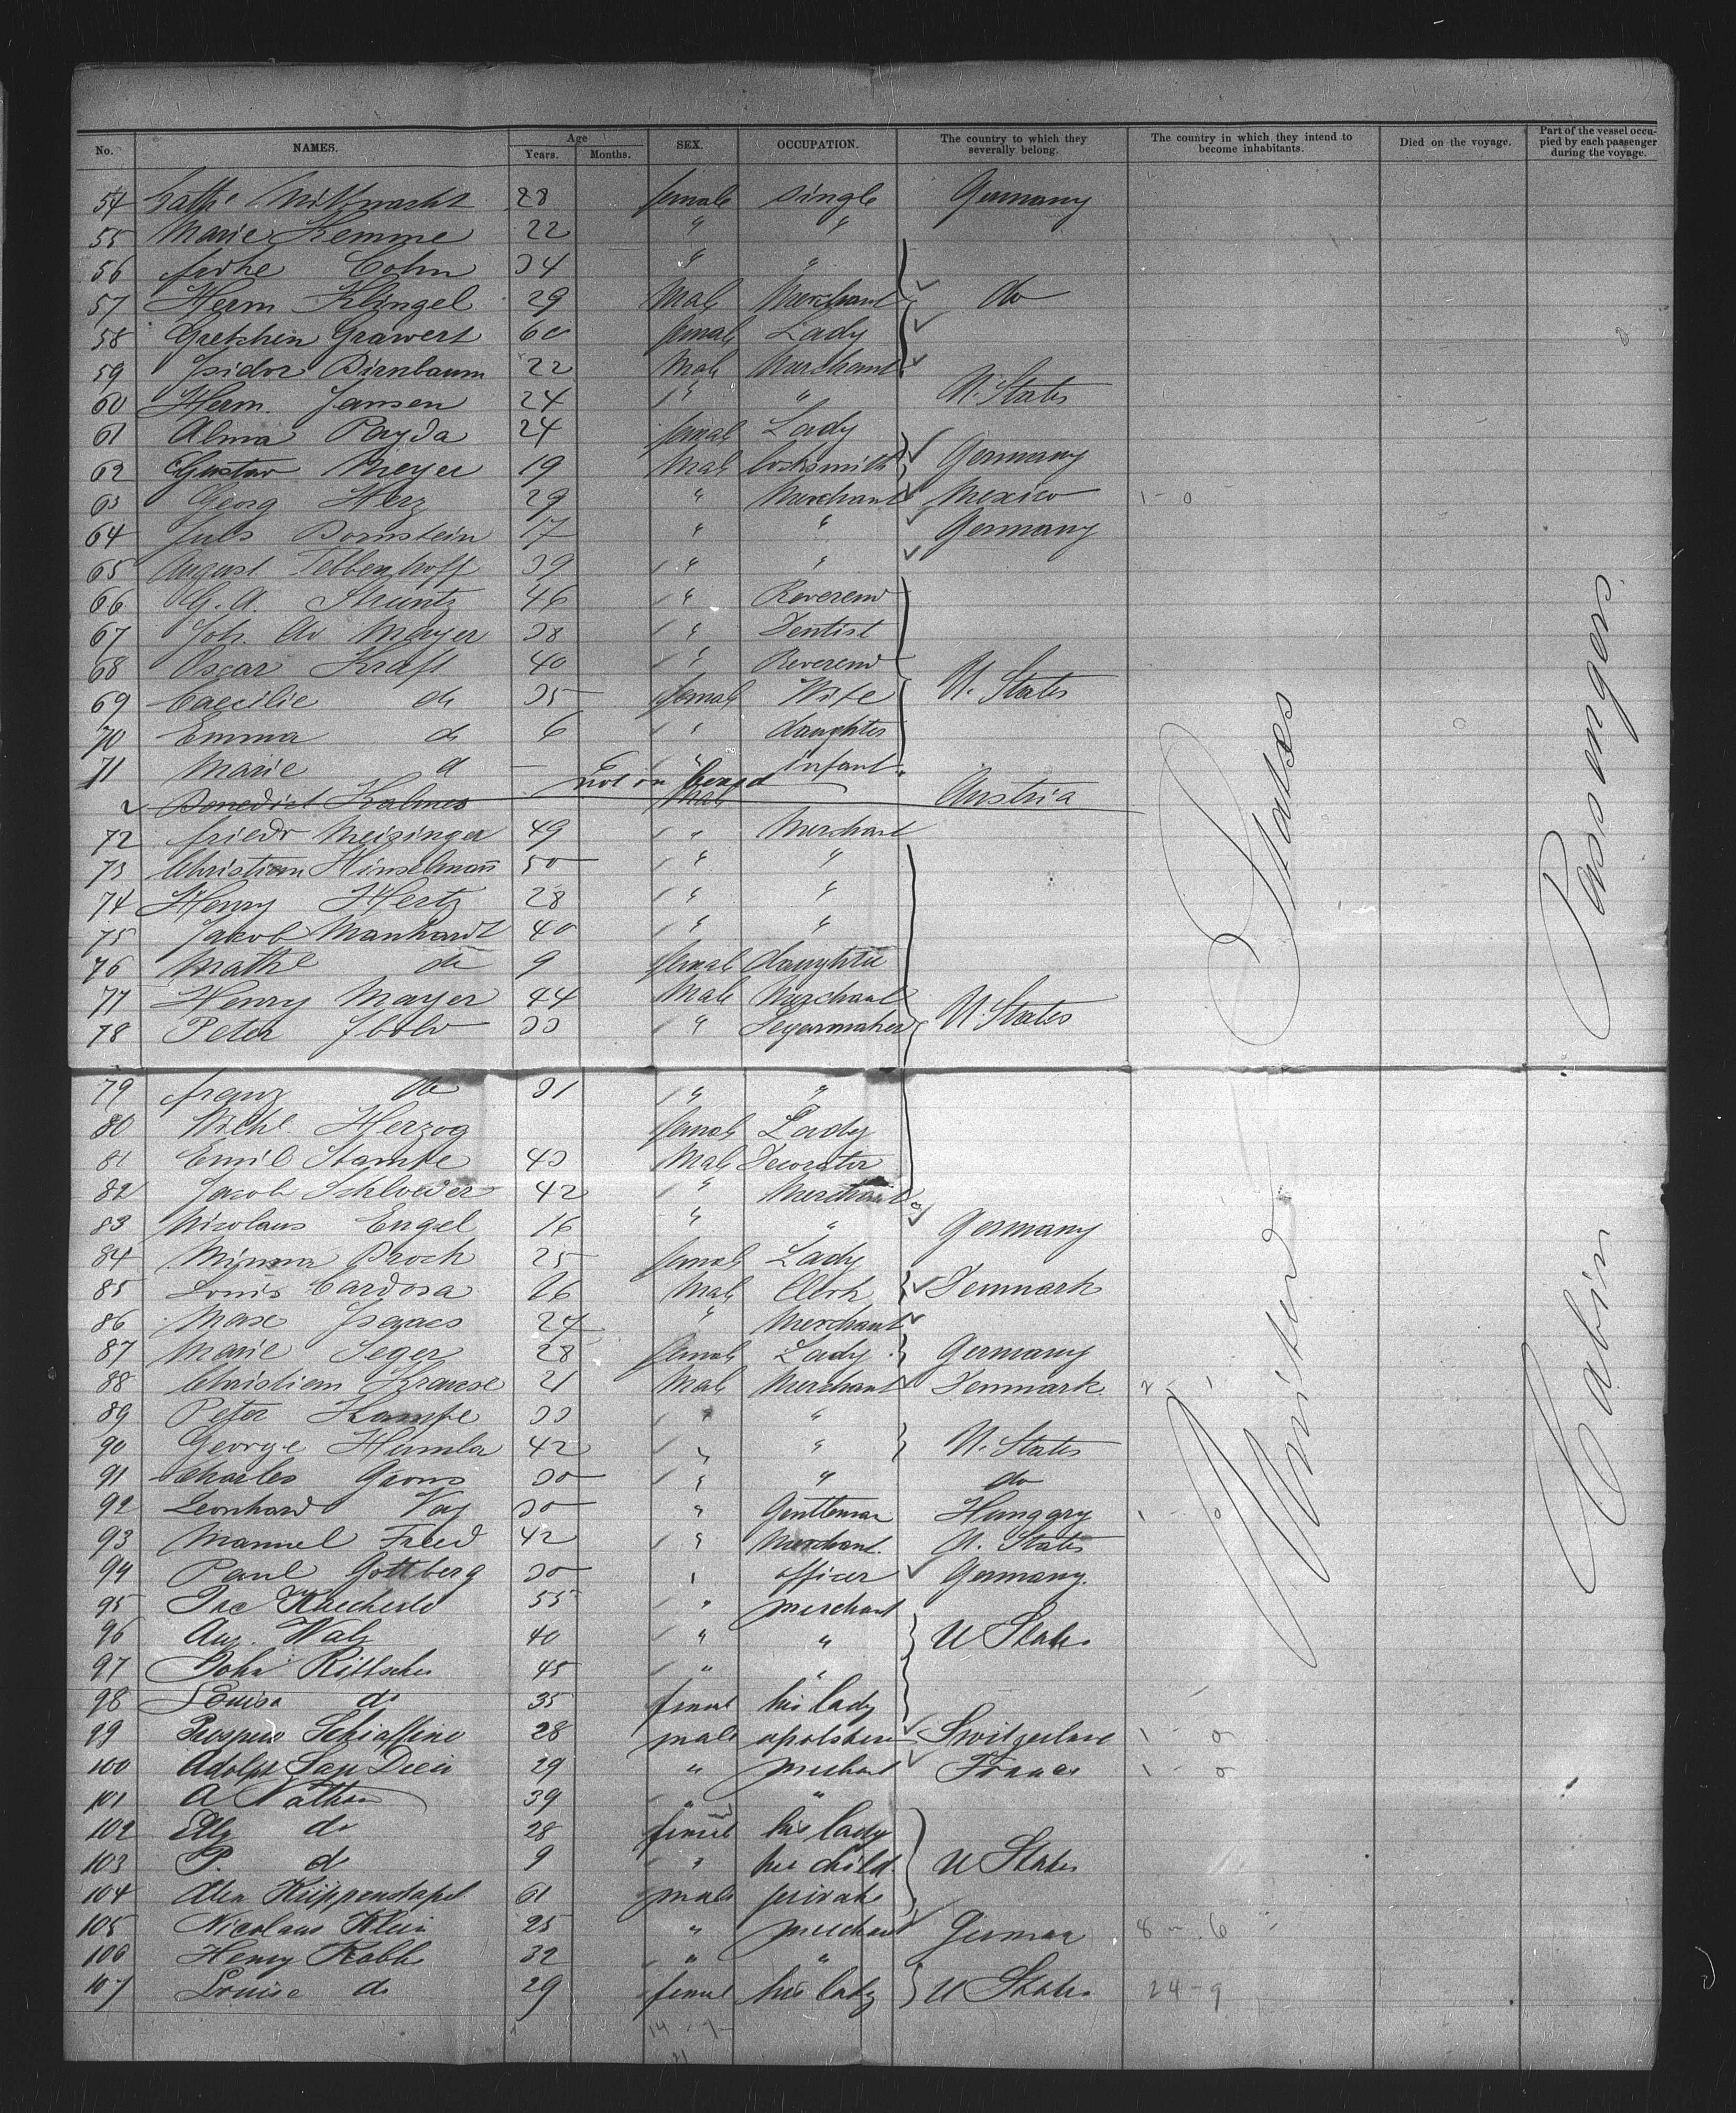 No. NAMES. Age Years. Months. SEX. OCCUPATION. The country to which they severally belong. The country in which they intend to become inhabitants. Died on the voyage. Part of the vessel occupied by each passenger during the voyage.
54 28 female single Germany
55 Marie Kemme 22 " "
56 Cohn 34 " "
57 Herm Klingel 29 Male Merchant do
58 Gretchen Grawert 60 female Lady
59 Isidor Birnbaum 22 Male Merchant
60 Herm. Jansen 24 " " U. States
61 Alma Payda 24 female Lady
62 Gustav Meyer 19 Male locksmith Germany
63 Georg Herz 29 " Merchant Mexico 1 - 0
64 Juls Bornstein 17 " " Germany
65 August Tebbenhoff 39 " "
66 G. A. Struntz 46 " Reverend
67 Joh. Mayer 38 " Dentist
68 Oscar Kraft 40 " Reverend
69 Caecilie do 35 female Wife U. States
70 Emma do 6 " daughter
71 Marie d — " Infant
not on board
Benedict Kalmus Male Austria
72 Friedr Meizinger 49 " Merchant
73 Christian Hinselmann 50 " "
74 Henry Hertz 28 " "
75 Jakob Manhardt 40 " "
76 Mathl do 9 female daughter
77 Henry Mayer 44 Male Merchant
78 Peter 33 " Segarmaker U. States
79 Franz do 31 " "
80 Herzog female Lady
81 Emil 43 Male Decorator
82 Jacob Schloeder 42 " Merchant
83 Nicolaus Engel 16 " " Germany
84 Minna Broch 25 female Lady
85 Louis Cardosa 26 Male Clerk Denmark
86 Max Isaacs 24 " Merchant
87 Marie Seger 28 female Lady Germany
88 Christian Krause 21 Male Merchant Denmark
89 Peter Kampe 33 " "
90 George Humla 42 " " U. States
91 Charles 30 " " do
92 Leonhard Vay 30 " Gentleman Hungary
93 Manuel Freed 42 " Merchant. U. States
94 Paul Gottberg 30 " officer Germany.
95 55 " merchant
96 Aug. Walz 40 " " U States
97 John Rittscher 45 " "
98 Louisa do 35 female his lady
99 Prospero Schiaffino 28 male upolsterer Switzerland
100 Adolph 29 " merchant France
101 A Nathan 39 " "
102 Elly do 28 female his lady
103 P. d 9 " her child U States
104 Alex Krippenstapel 61 male private
105 Nicolaus Klein 25 " merchant German 8 - 6
106 Henry Rabbe 32 " "
107 Louise do 29 female his lady U States 24 - 9
United States
Cabin Passengers.